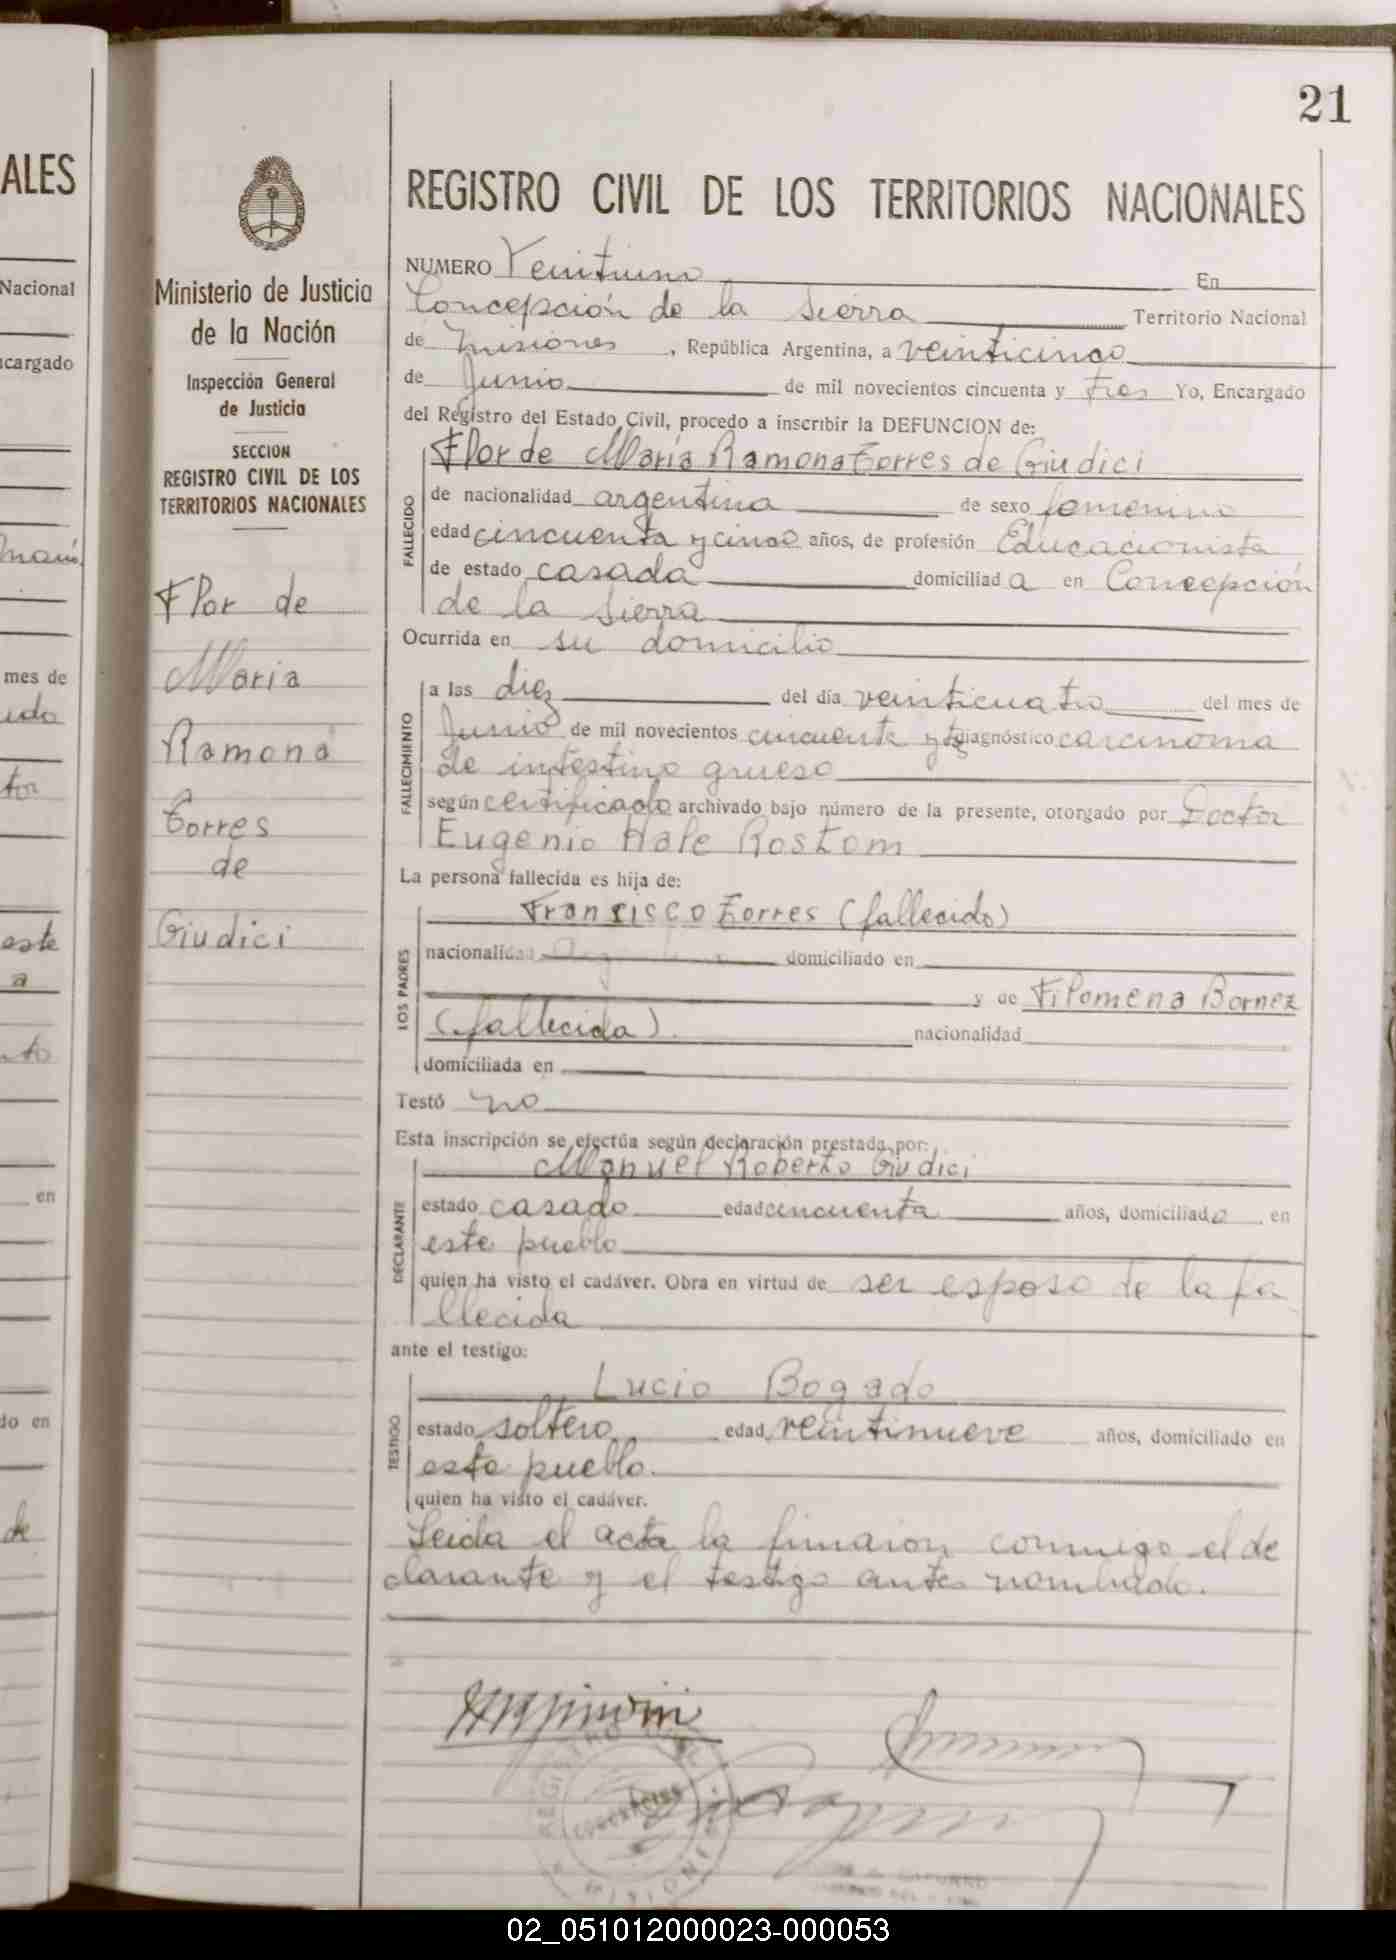 21
ALES
Nacional
cargado
mes de
este
a
en
do en
de
Ministerio de Justicia
de la Nación
Inspección General
de Justicia
SECCION
REGISTRO CIVIL DE LOS
TERRITORIOS NACIONALES
Flor de
María
Ramona
Torres
de
Giudici
REGISTRO CIVIL DE LOS TERRITORIOS NACIONALES
NUMERO Veintiuno En
Concepción de la Sierra Territorio Nacional
de Misiones, República Argentina, a veinticinco
de Junio de mil novecientos cincuenta y tres Yo, Encargado
del Registro del Estado Civil, procedo a inscribir la DEFUNCION de:
FALLECIDO
Flor de María Ramona Torres de Giudici
de nacionalidad argentina de sexo femenino
edad cincuenta y cinco años, de profesión Educacionista
de estado casada domiciliada en Concepción
de la Sierra
Ocurrida en su domicilio
FALLECIMIENTO
a las diez del día veinticuatro del mes de
Junio de mil novecientos cincuenta y diagnóstico carcinoma
de intestino grueso
según certificado archivado bajo número de la presente, otorgado por Doctor
Eugenio Hale Rostom
La persona fallecida es hija de:
LOS PADRES
Francisco Torres (fallecido)
nacionalidad domiciliado en
y de Filomena Bornez
(fallecida). nacionalidad
domiciliada en
Testó no
Esta inscripción se efectúa según declaración prestada por:
DECLARANTE
Manuel Roberto Giudici
estado casado edad cincuenta años, domiciliado en
este pueblo
quien ha visto el cadáver. Obra en virtud de ser esposo de la fa
llecida
ante el testigo:
TESTIGO
Lucio Bogado
estado soltero edad veintinueve años, domiciliado en
este pueblo.
quien ha visto el cadáver.
Leida el acta la firmaron conmigo el de
clarante y el testigo antes nombrado.
REGISTRO CIVIL
CONCEPCION
MISIONES
02_051012000023-000053